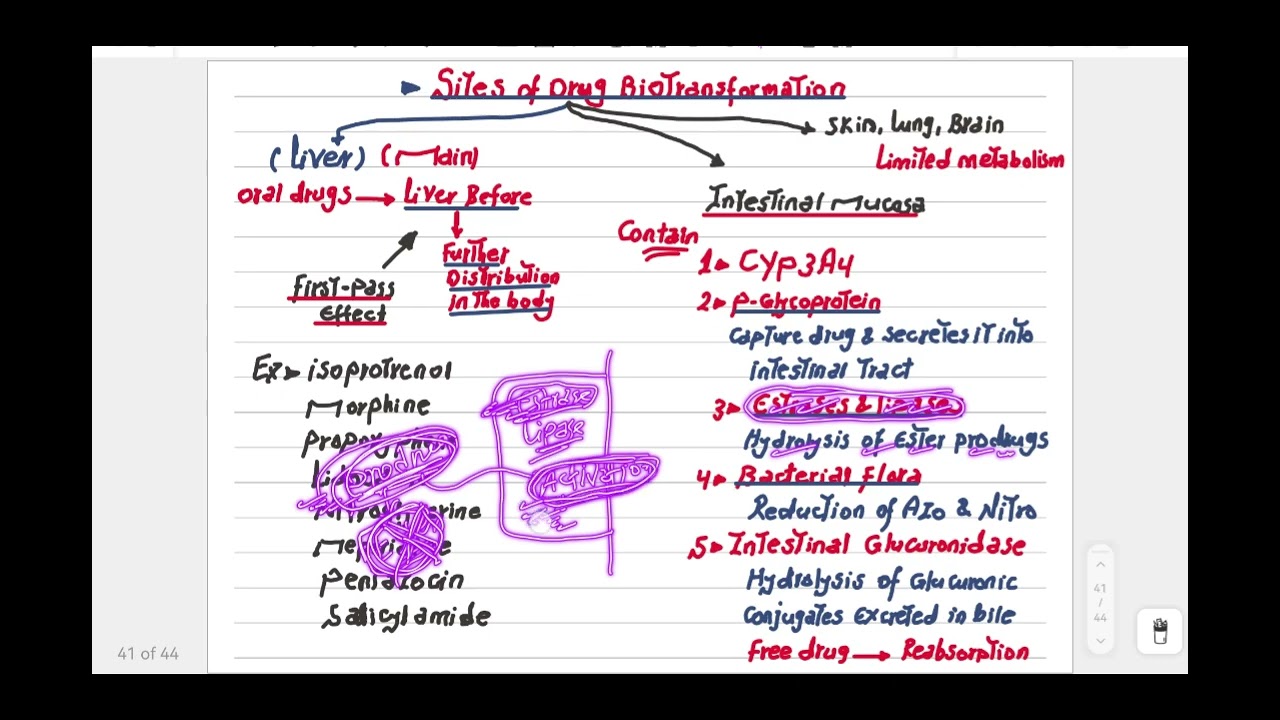 Sites of Drug BioTransformation
(Liver) (Main)
oral drugs → Liver Before
Further
Distribution
in The body
First-pass
Effect
Ex▸ isoprotrenol
Morphine
Pentazocin
Salicylamide
Lipase
Activation
skin, lung, Brain
Limited metabolism
Intestinal Mucosa
Contain
1▸ Cyp3A4
2▸ P-Glycoprotein
Capture drug & secretes iT into
intestinal Tract
3▸ Esterases & lipases
Hydrolysis of Ester prodrugs
4▸ Bacterial Flora
Reduction of Azo & Nitro
5▸ Intestinal Glucuronidase
Hydrolysis of Glucuronic
Conjugates excreted in bile
Free drug → Reabsorption
41
/
44
41 of 44